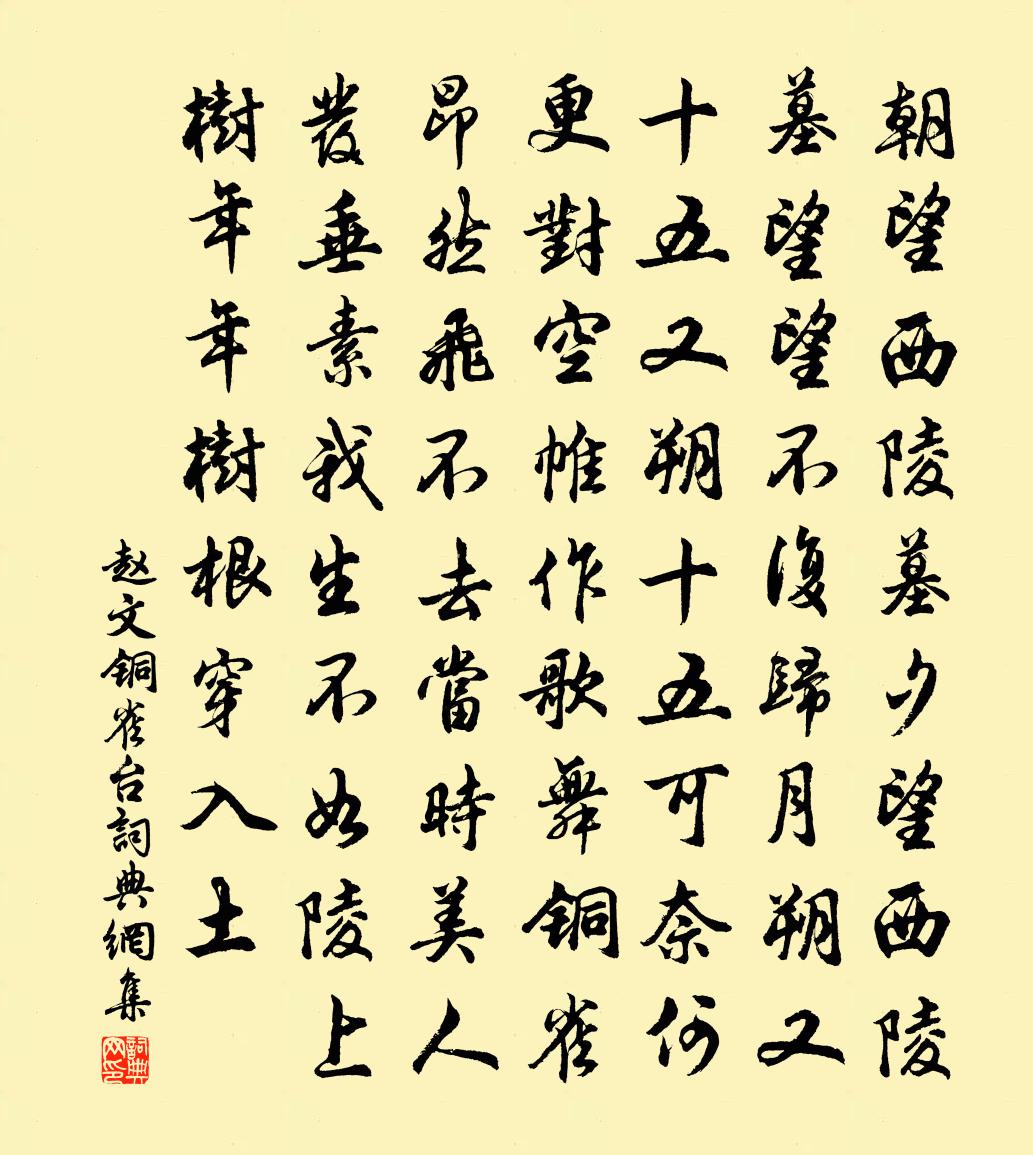 朝望西陵墓夕望西陵
墓望望不復歸月朔又
十五又朔十五可奈何
更對空帷作歌舞铜雀
昂然飛不去當時美人
發垂素我生不如陵上
樹年年樹根穿入土
赵文铜雀台詞典網集
詞典网印